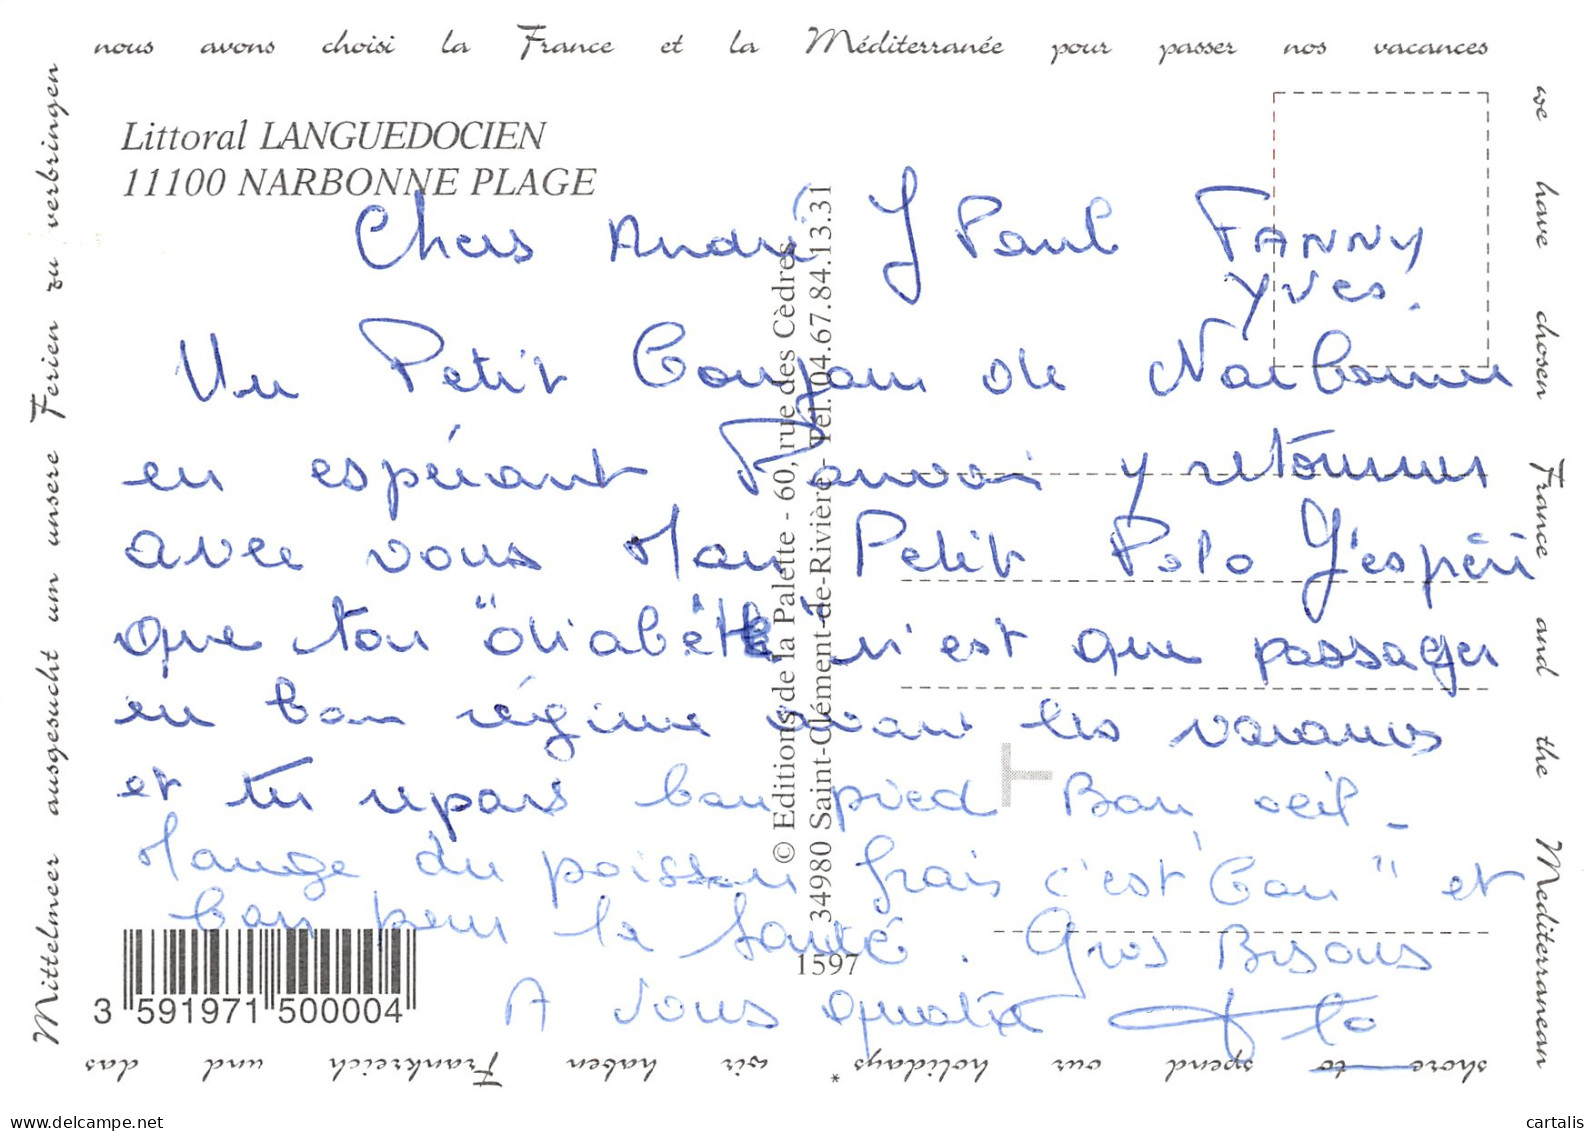 nous avons choisi la France et la Méditerranée pour passer nos vacances
we have chosen France and the Mediterranean
shore to spend our holidays* wir haben Frankreich und das
Mittelmeer ausgesucht um unsere Ferien zu verbringen
Littoral LANGUEDOCIEN
11100 NARBONNE PLAGE
Chers André J Paul FANNY
Yves.
Un Petit Coucou de Narbonne
en espérant Pouvoir y retourner
avec vous Mon Petit Polo J'espère
que ton "diabète" n'est que passager
un bon régime avant les vacances
et tu repars bon pied Bon oeil -
Mange du poisson frais c'est "bon" et
bon pour la santé. Gros Bisous
A vous quatre
© Editions de la Palette - 60, rue des Cèdres
34980 Saint-Clément-de-Rivière - Tél. 04.67.84.13.31
1597
3 591971 500004
delcampe.net
cartalis